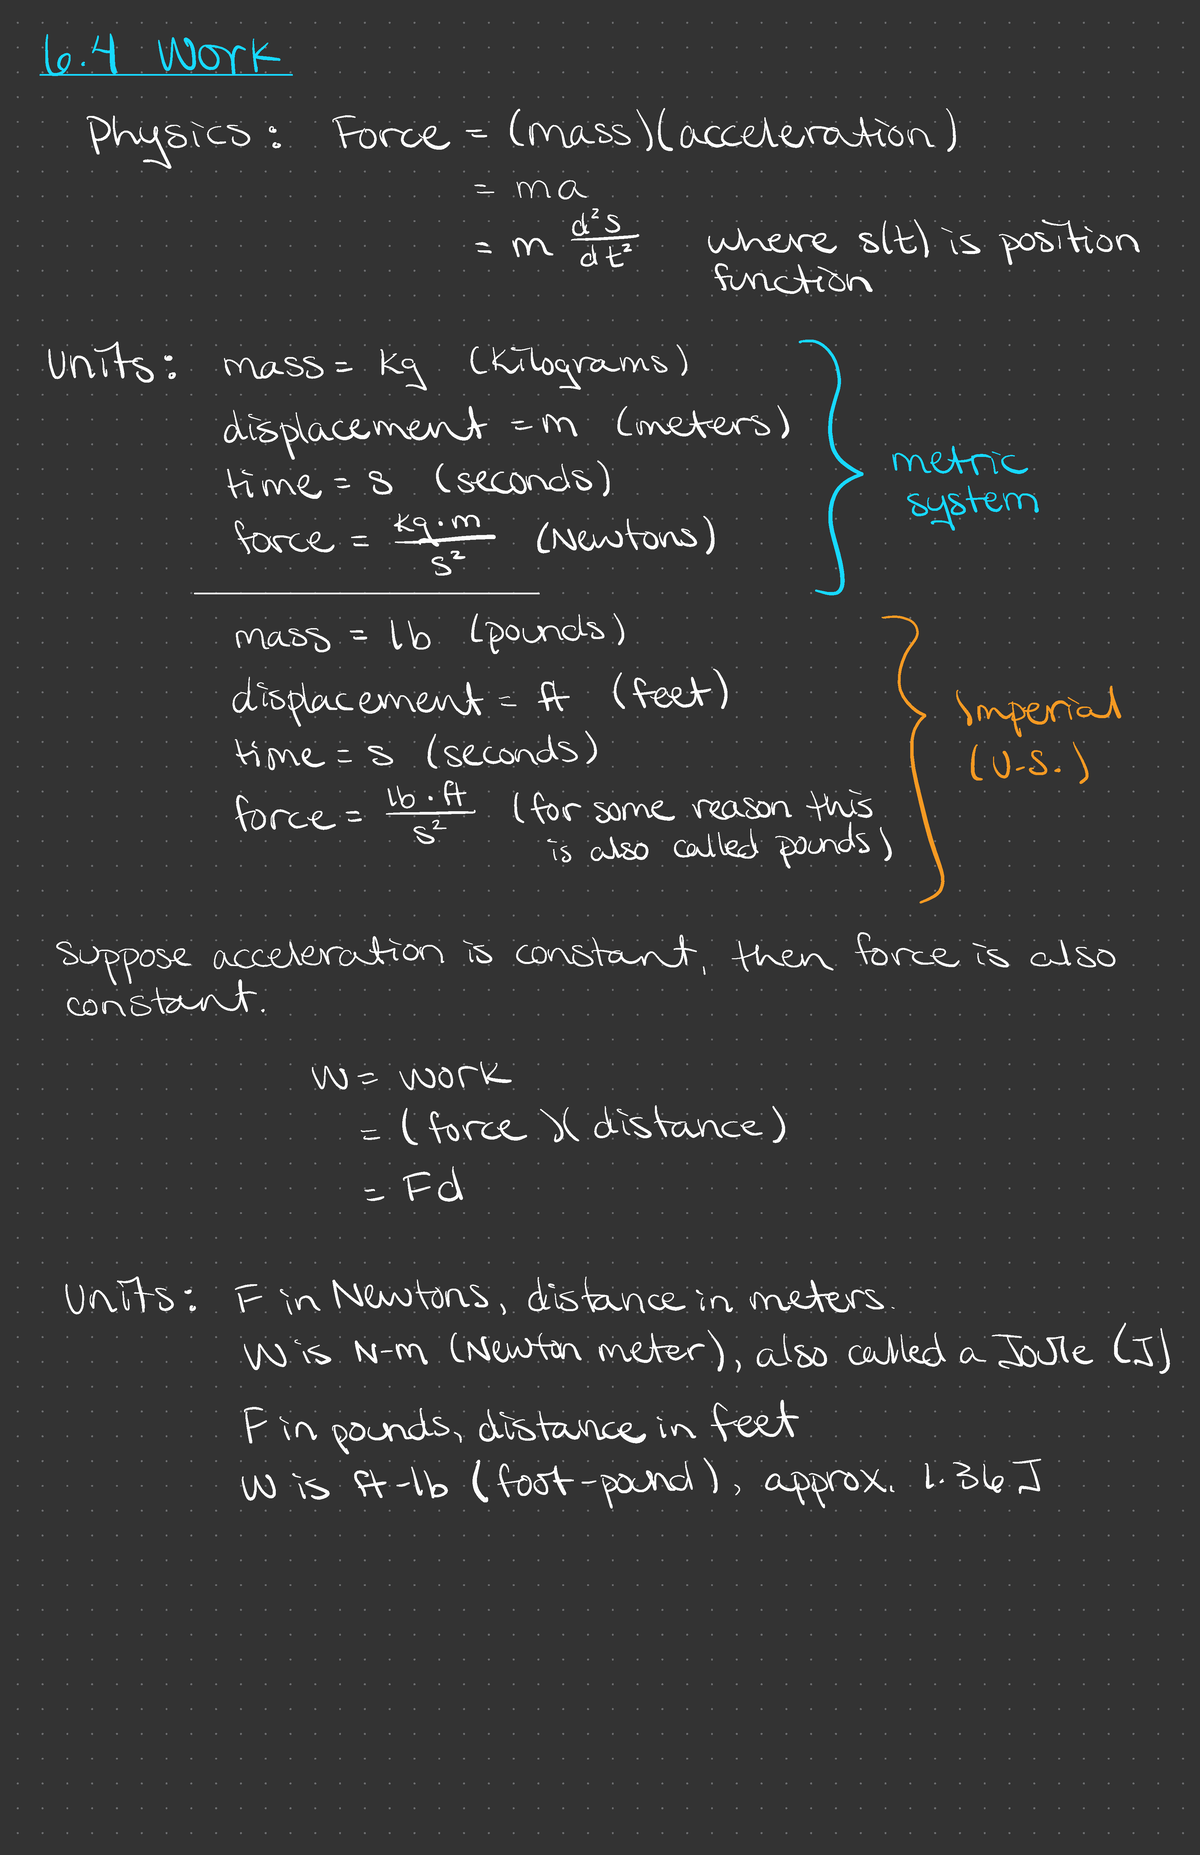 6.4 Work
Physics: Force = (mass)(acceleration)
= ma
= m d²s/dt² where s(t) is position
function
Units: mass = kg (kilograms)
displacement = m (meters)
time = s (seconds)
force = kg·m/s² (Newtons)
metric
system
mass = lb (pounds)
displacement = ft (feet)
time = s (seconds)
force = lb·ft/s² (for some reason this
is also called pounds)
Imperial
(U.S.)
Suppose acceleration is constant, then force is also
constant.
W = work
= (force)(distance)
= Fd
Units: F in Newtons, distance in meters.
W is N-m (Newton meter), also called a Joule (J)
F in pounds, distance in feet
W is ft-lb (foot-pound), approx. 1.36 J